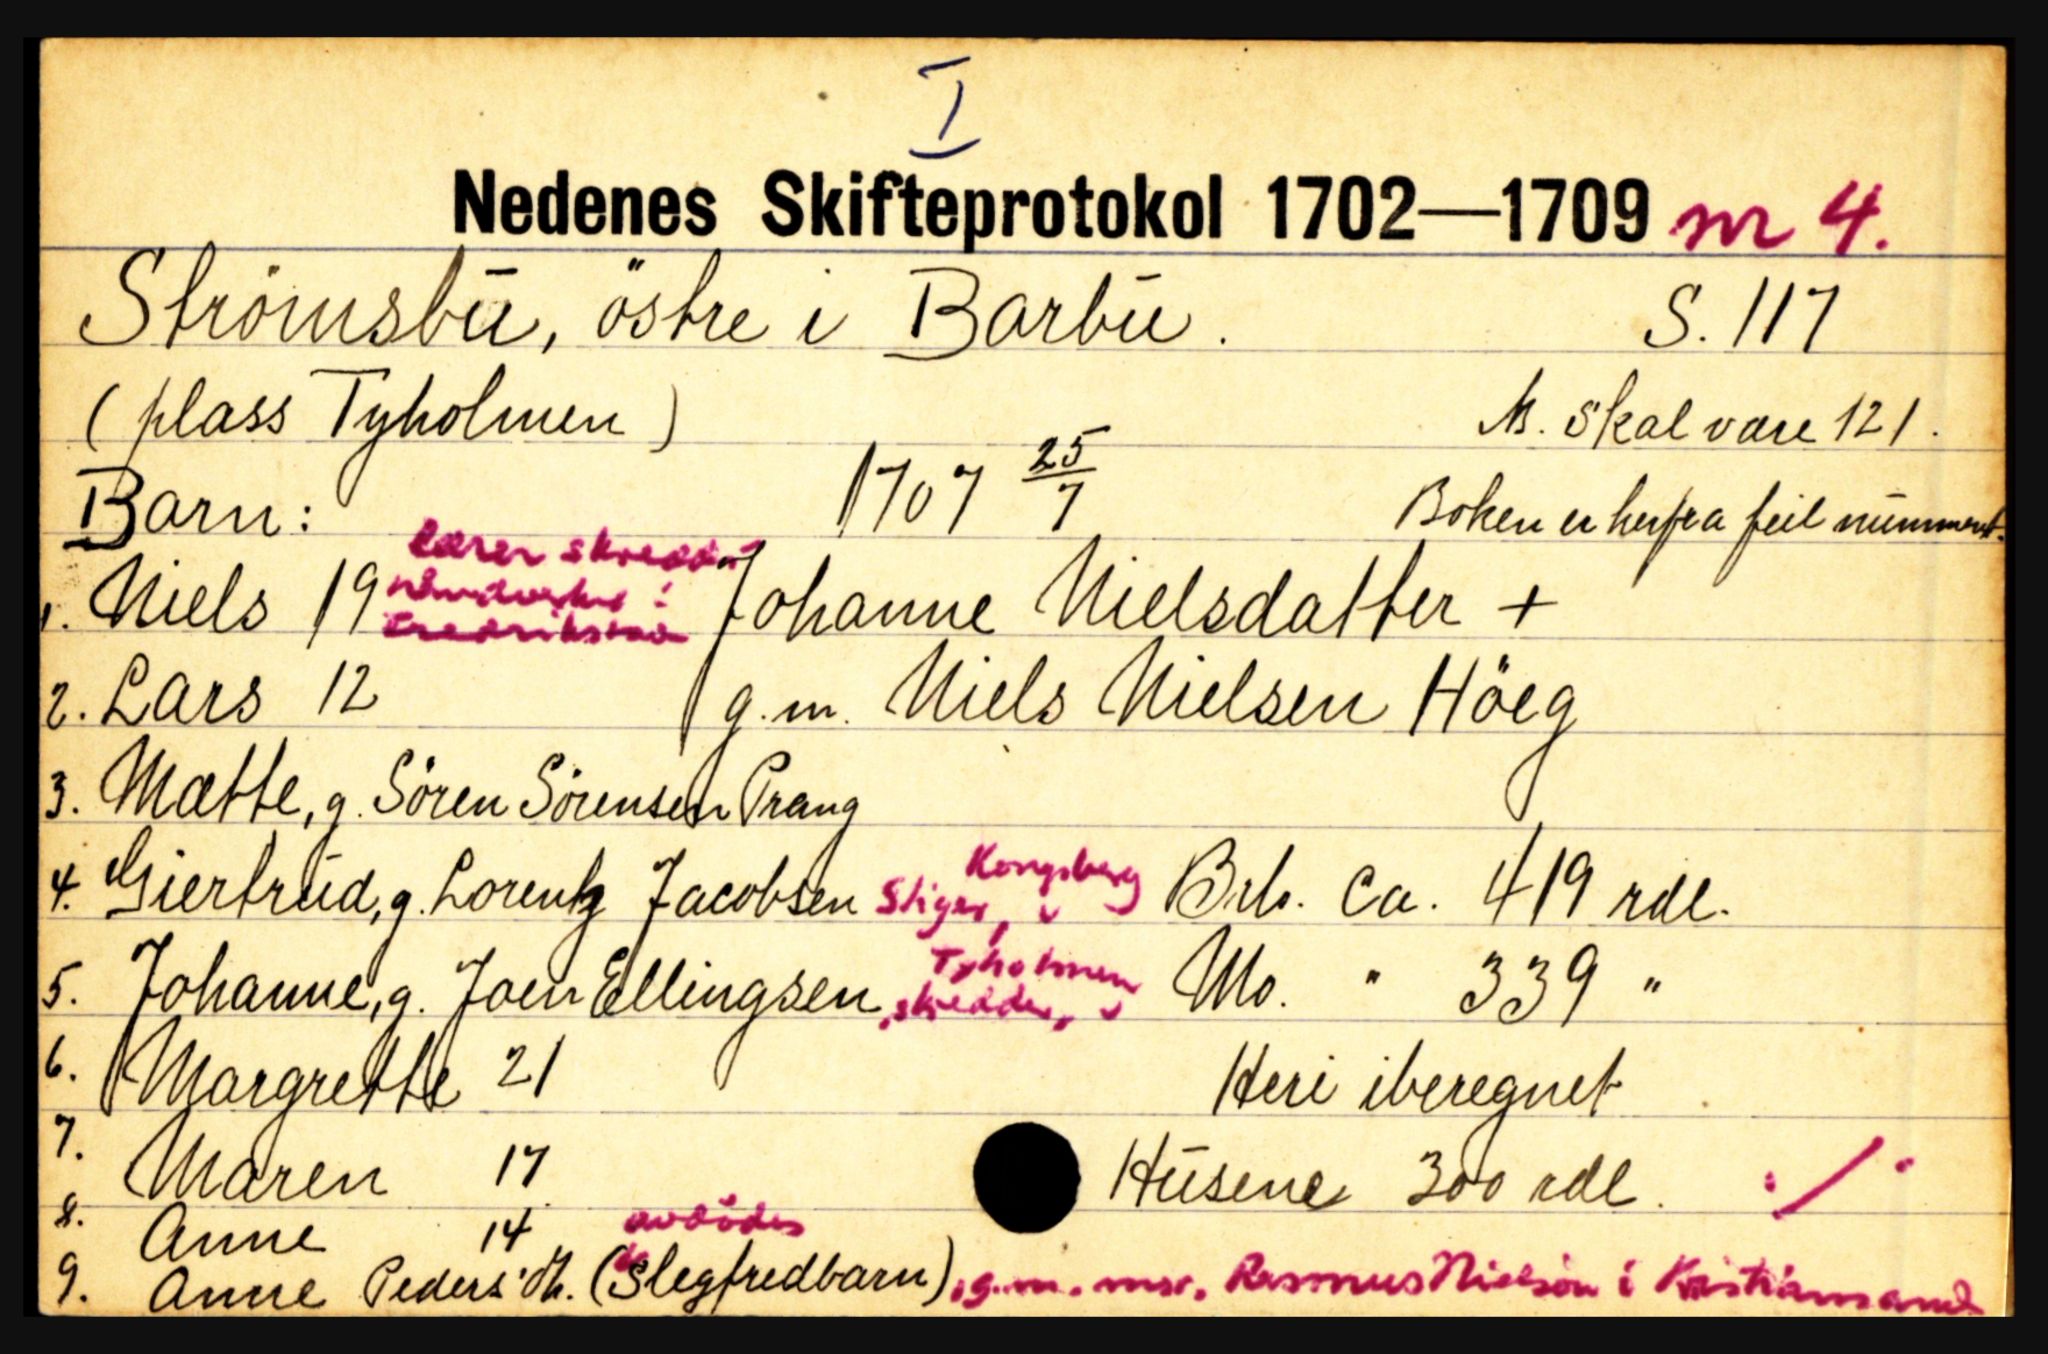 I
Nedenes Skifteprotokol 1702—1709 nr 4.
Strömsbū, östre i Barbū. S. 117
(plass Tyholmen) M. skal være 121.
Barn: 1707 25/7 Boken er herfra feil nūmmert.
lærer skredder
1. Niels 19 håndverket i Johanne Nielsdatter +
Fredrikstad
2. Lars 12 g.m. Niels Nielsen Höeg
3. Mætte, g. Sören Sörensen Prang
4. Giertrūd, g. Lorentz Jacobsen Stiger, v Kongsberg Brb. Ca. 419 rdl.
5. Johanne, g. Joen Ellingsen, skredder, v Tyholmen Mo. " 339 "
6. Margrette 21 Heri iberegnet
7. Maren 17 Hūsene 300 rdl. ./.
8. Anne 14 avdödes
9. Anne Peders'dtr. (Slegfredbarn), g.m. msr. Rasmus Nielsen i Kristiansand